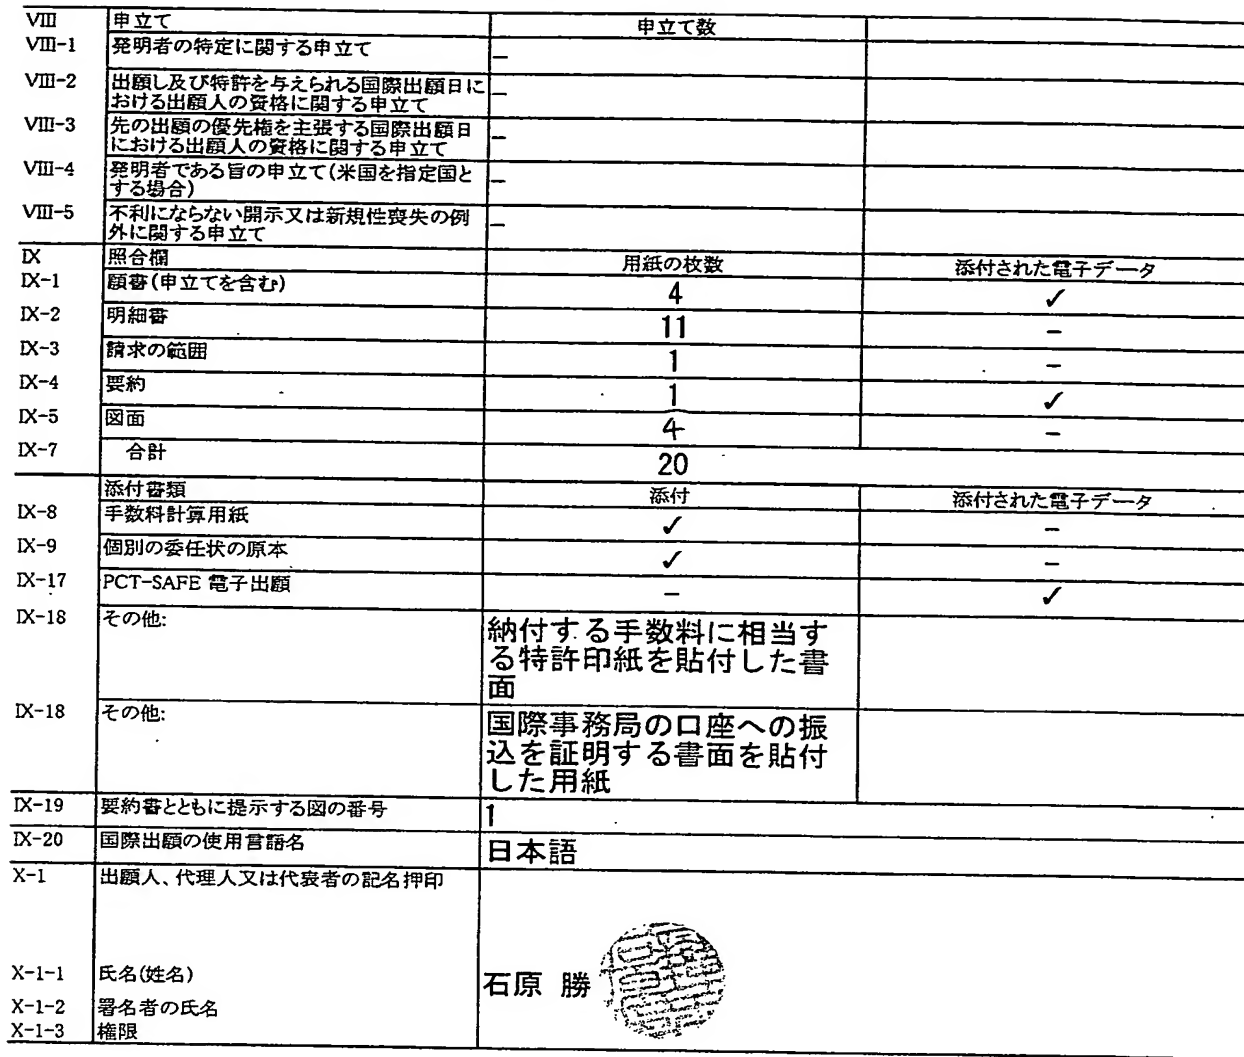 VIII 申立て 申立て数
VIII-1 発明者の特定に関する申立て –
VIII-2 出願し及び特許を与えられる国際出願日に
おける出願人の資格に関する申立て –
VIII-3 先の出願の優先権を主張する国際出願日
における出願人の資格に関する申立て –
VIII-4 発明者である旨の申立て(米国を指定国と
する場合) –
VIII-5 不利にならない開示又は新規性喪失の例
外に関する申立て –
IX 照合欄 用紙の枚数 添付された電子データ
IX-1 願書(申立てを含む) 4 ✓
IX-2 明細書 11 –
IX-3 請求の範囲 1 –
IX-4 要約 1 ✓
IX-5 図面 4 –
IX-7 合計 20
添付書類 添付 添付された電子データ
IX-8 手数料計算用紙 ✓ –
IX-9 個別の委任状の原本 ✓ –
IX-17 PCT-SAFE 電子出願 – ✓
IX-18 その他: 納付する手数料に相当す
る特許印紙を貼付した書
面
IX-18 その他: 国際事務局の口座への振
込を証明する書面を貼付
した用紙
IX-19 要約書とともに提示する図の番号 1
IX-20 国際出願の使用言語名 日本語
X-1 出願人、代理人又は代表者の記名押印
X-1-1 氏名(姓名) 石原 勝
X-1-2 署名者の氏名
X-1-3 権限